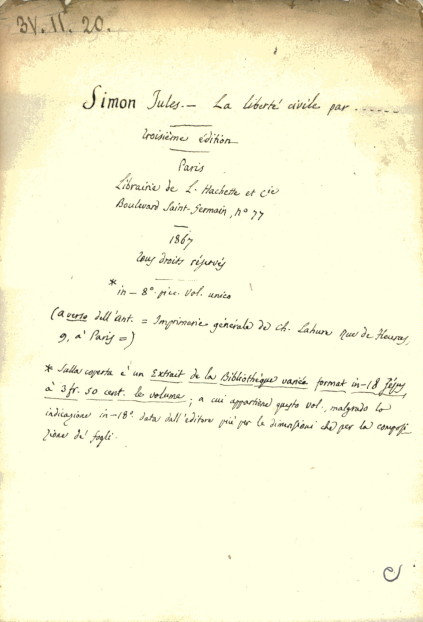 3V. II. 20.
Simon Jules. — La liberté civile par ........
troisième édition
Paris
Librairie de L. Hachette et Cie
Boulevard Saint-Germain, n° 77
1867
tous droits réservés
* in-8° picc. vol. unico
(a verso dell'ant. = Imprimerie générale de Ch. Lahure Rue de Fleurus,
9, à Paris =)
* Sulla coperta è un Extrait de la Bibliothèque variée format in-18 jésus
à 3 fr. 50 cent. le volume; a cui appartiene questo vol., malgrado lo
indicazione in-18°. data dall'editore più per le dimensioni che per la composi
zione de' fogli.